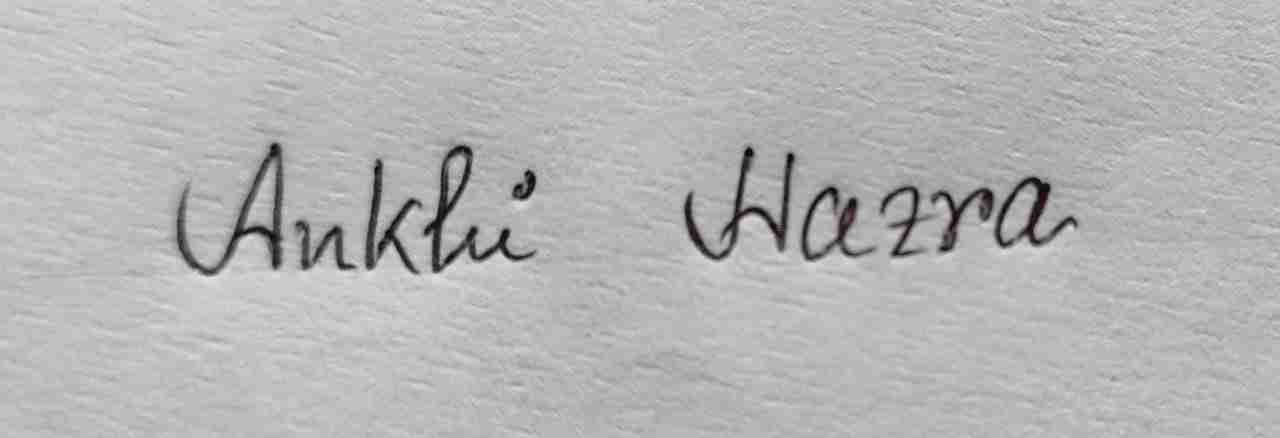 Ankhi Hazra